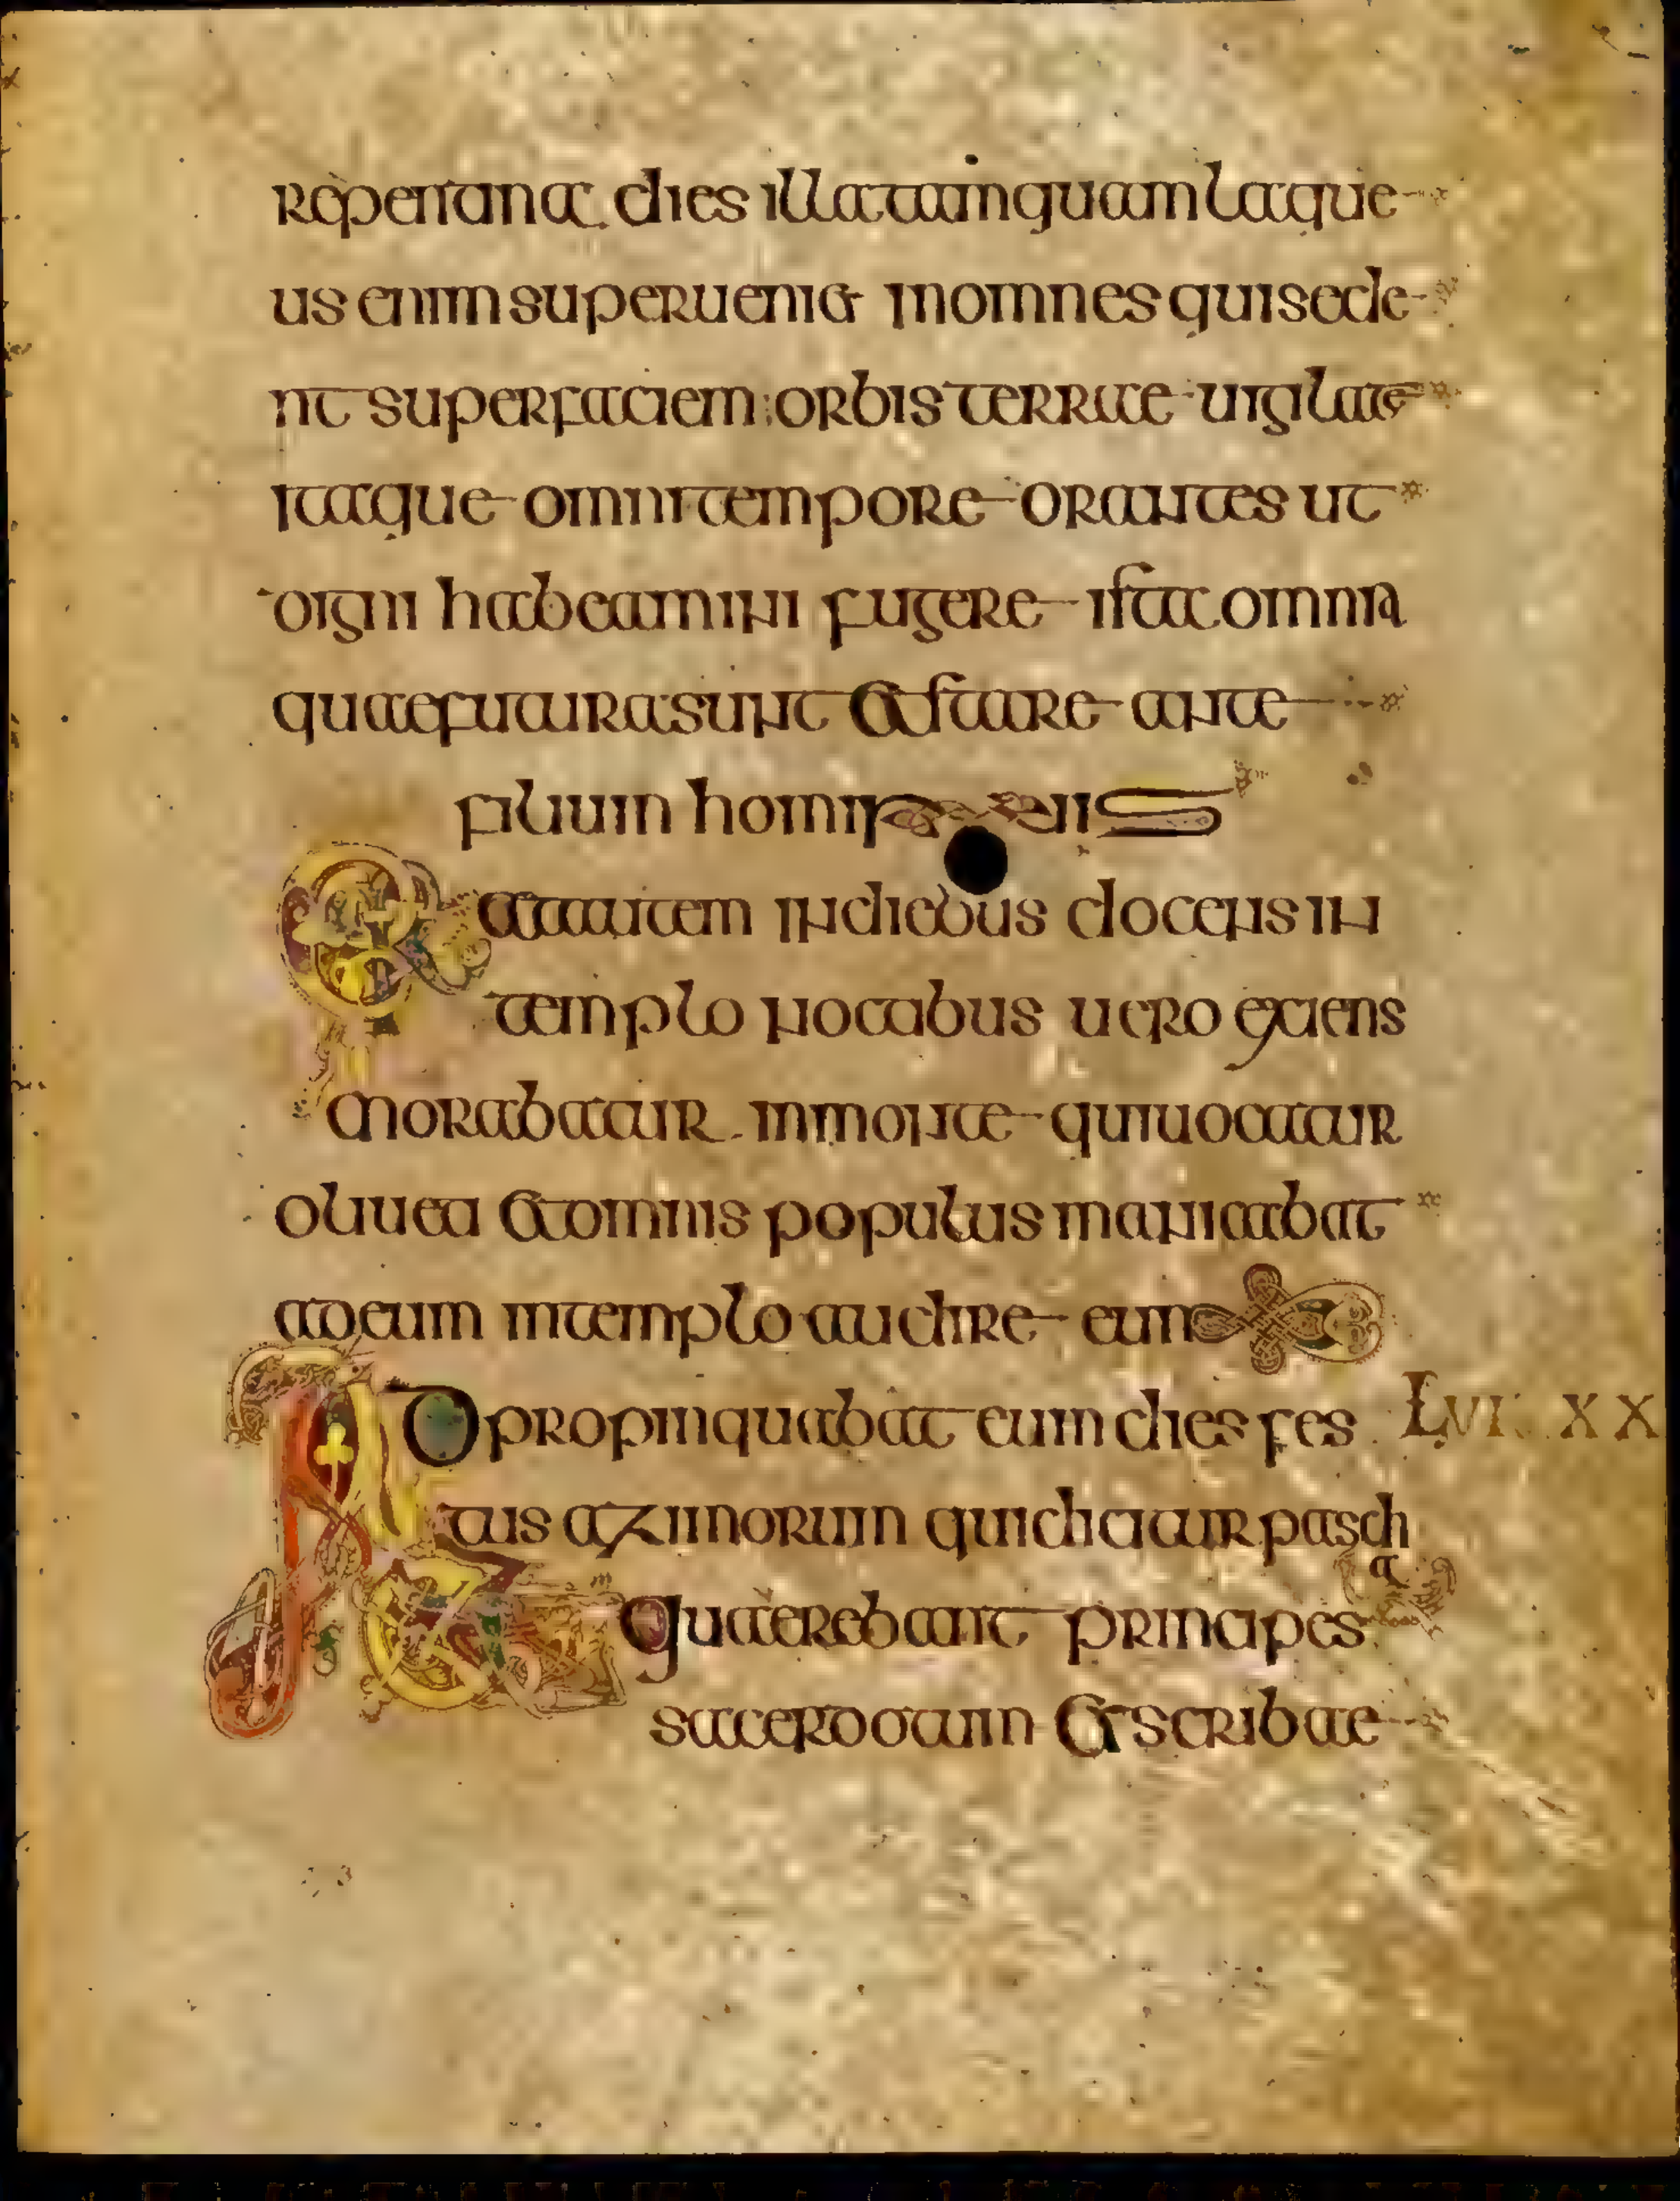 repentina dies illa tamquam laque
us enim superueniet in omnes qui sede
nt super faciem orbis terrae uigilate
itaque omni tempore orantes ut
digni habeamini fugere ista omnia
quae futura sunt et stare ante
filium hominis
Erat autem in diebus docens in
templo noctibus uero exiens
morabatur in monte qui uocatur
oliueti et omnis populus manicabat
ad eum in templo audire eum
Adpropinquabat eum dies fes LVI XX
tus azimorum qui dicitur pasch
a
Et quaerebant principes
sacerdotum et scribae